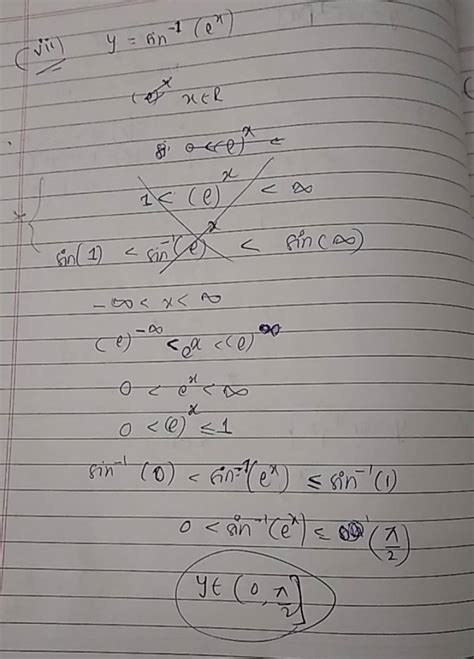 (vii) y = sin⁻¹(eˣ)
(e)ˣ x∈R
0 < (e)ˣ <
1 < (e)ˣ < ∞
sin(1) < sin⁻¹(e)ˣ < sin(∞)
-∞ < x < ∞
(e)^-∞ < eˣ < (e)^∞
0 < eˣ < ∞
0 < (e)ˣ ≤ 1
sin⁻¹(0) < sin⁻¹(eˣ) ≤ sin⁻¹(1)
0 < sin⁻¹(eˣ) ≤ (π/2)
y∈ (0, π/2]